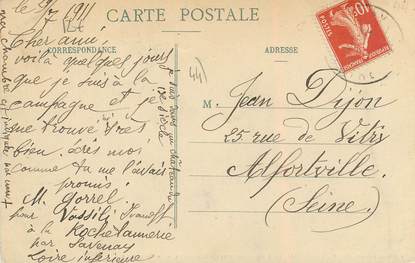 le 9/7 1911
CARTE POSTALE
CORRESPONDANCE
ADRESSE
Cher ami
voilà quelques jours
que je suis à la
campagne et je
me trouve très
bien. Ecris moi
comme tu me l'avais
promis
M. Gorrel
pour Vassili
à la Rochelannerie
par Savenay
Loire inférieure
je suis dans un château du
13e siècle
ma chambre est
44
M. Jean Dijon
25 rue de Vitry
Alfortville
(Seine)
10
POSTES
REPUBLIQUE FRANÇAISE